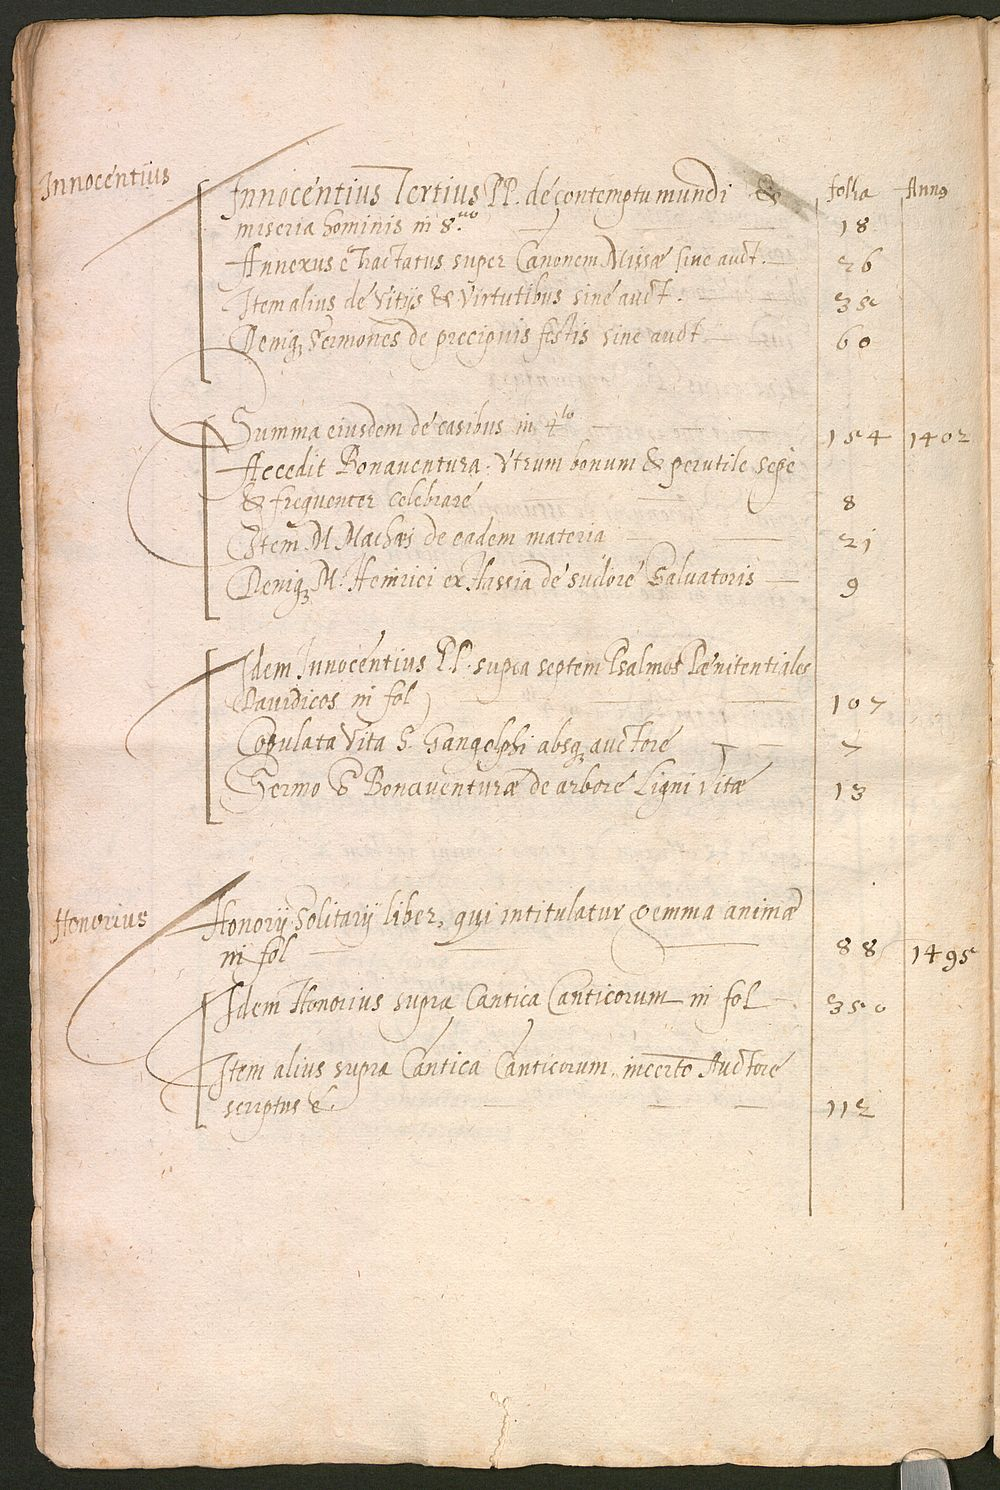 Innocentius
Innocentius Tertius PP. de contemptu mundi & folia Anno
miseria hominis in 8.uo 18
Annexus ē Tractatus super Canonem Missæ sine auct. 26
Item alius de Vitijs & Virtutibus sine auct. 35
Deniq₃ Sermones de precipuis festis sine auct. 60
Summa eiusdem de casibus in 4to 154 1402
Accedit Bonaventura. Vtrum bonum & perutile sepe
& frequenter celebrare 8
Item M Mathæi de eadem materia 21
Deniq₃ M. Heinrici ex Hassia de sudore Salvatoris 9
Idem Innocentius P.P. supra septem Psalmos Pænitentiales
Davidicos in fol 107
Copulata Vita S. Gangolphi absq₃ auctore 7
Sermo S Bonaventuræ de arbore Ligni Vitæ 13
Honorius
Honorij Solitarij liber, qui intitulatur gemma animæ
in fol 88 1495
Idem Honorius supra Cantica Canticorum in fol 350
Item alius supra Cantica Canticorum incerto Auctore
scriptus ē. 112